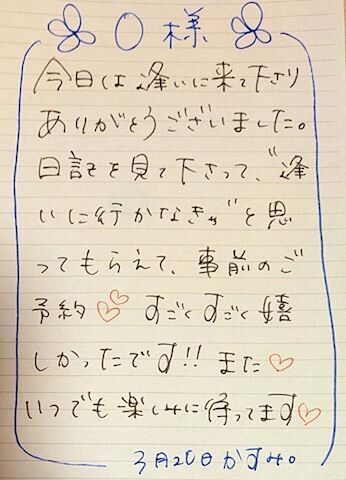 〇様
今日は逢いに来て下さり
ありがとうございました。
日記を見て下さって、"逢
いに行かなきゃ"と思
ってもらえて、事前のご
予約♡♡ すごくすごく嬉
しかったです!! また♡
いつでも楽しみに待ってます♡
3月20日かすみ。